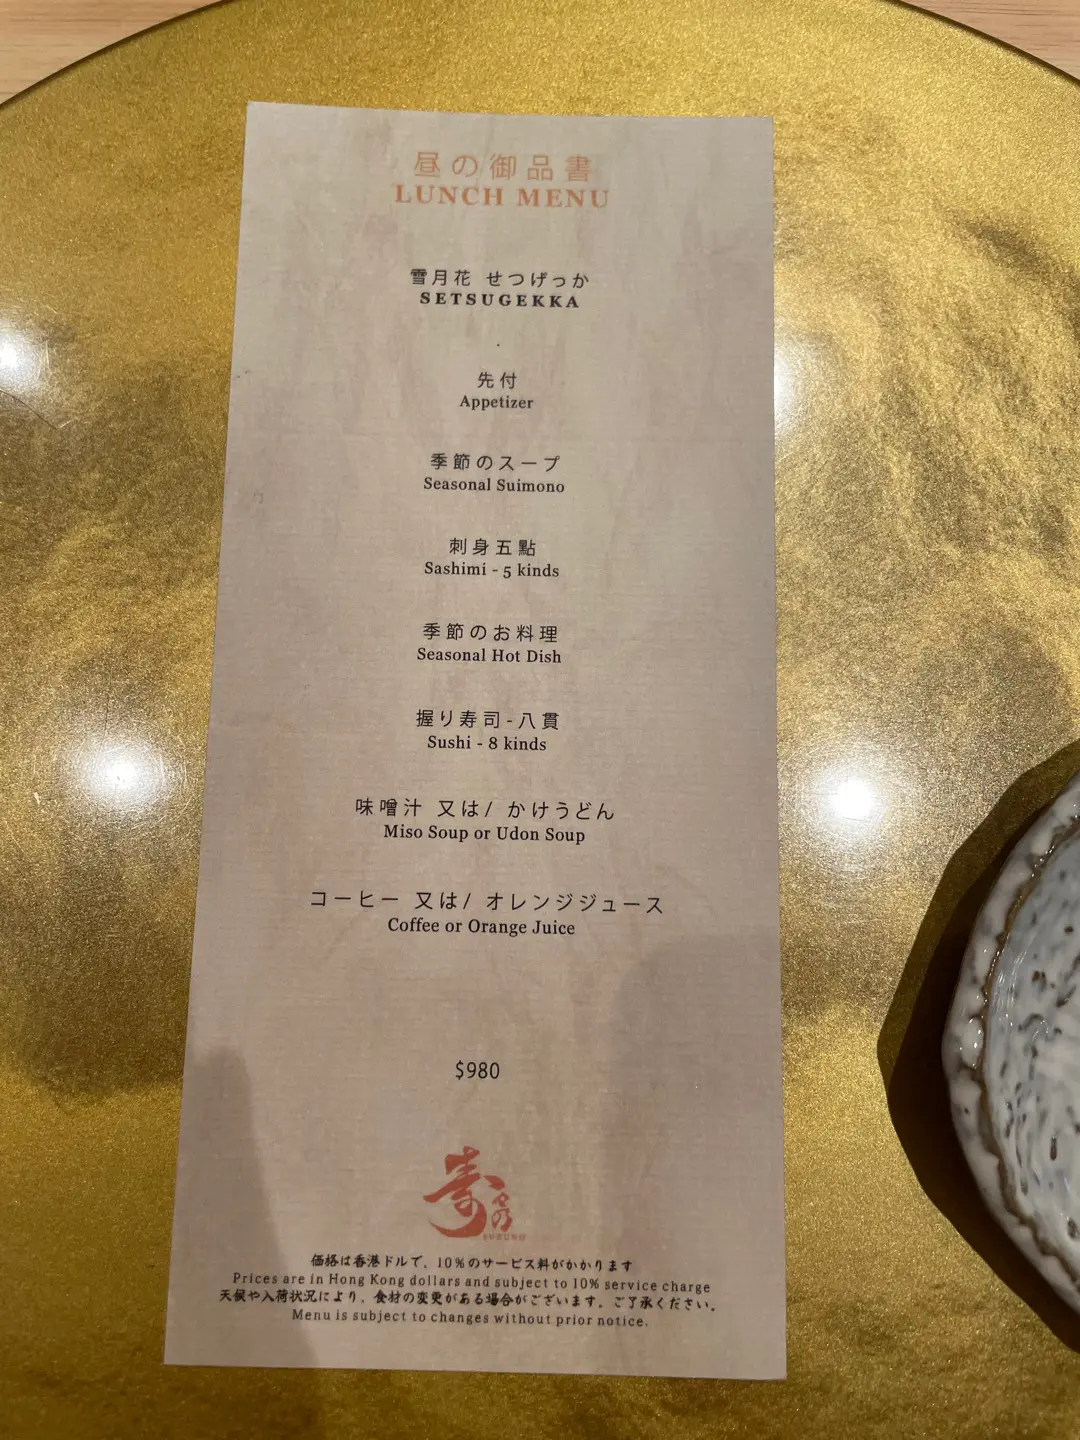 昼の御品書
LUNCH MENU
雪月花 せつげっか
SETSUGEKKA
先付
Appetizer
季節のスープ
Seasonal Suimono
刺身五點
Sashimi - 5 kinds
季節のお料理
Seasonal Hot Dish
握り寿司-八貫
Sushi - 8 kinds
味噌汁 又は/ かけうどん
Miso Soup or Udon Soup
コーヒー 又は/ オレンジジュース
Coffee or Orange Juice
$980
寿
価格は香港ドルで、10%のサービス料がかかります
Prices are in Hong Kong dollars and subject to 10% service charge
天候や入荷状況により、食材の変更がある場合がございます。ご了承ください。
Menu is subject to changes without prior notice.